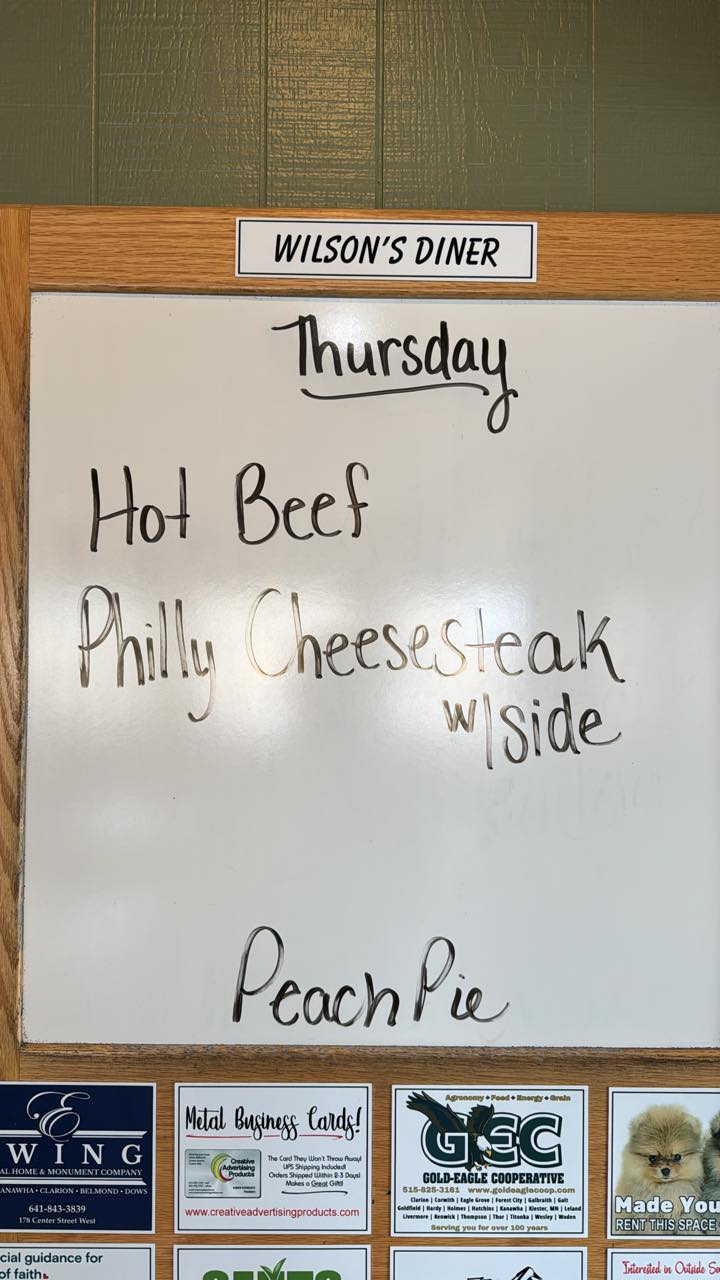 WILSON'S DINER
Thursday
Hot Beef
Philly Cheesesteak
w/side
Peach Pie
E
WING
AL HOME & MONUMENT COMPANY
KANAWHA • CLARION • BELMOND • DOWS
641-843-3839
178 Center Street West
Metal Business Cards!
Creative
Advertising
Products
The Card They Won't Throw Away!
UPS Shipping Included!
Orders Shipped Within 2-3 Days!
Makes a Great Gift!
www.creativeadvertisingproducts.com
Agronomy • Feed • Energy • Grain
GEC
GOLD-EAGLE COOPERATIVE
515-825-3161 www.goldeaglecoop.com
Clarion | Corwith | Eagle Grove | Forest City | Galbraith | Galt
Goldfield | Hardy | Holmes | Hutchins | Kanawha | Kiester, MN | Leland
Livermore | Renwick | Thompson | Thor | Titonka | Wesley | Woden
Serving you for over 100 years
Made You
RENT THIS SPACE
cial guidance for
of faith
Interested in Outside